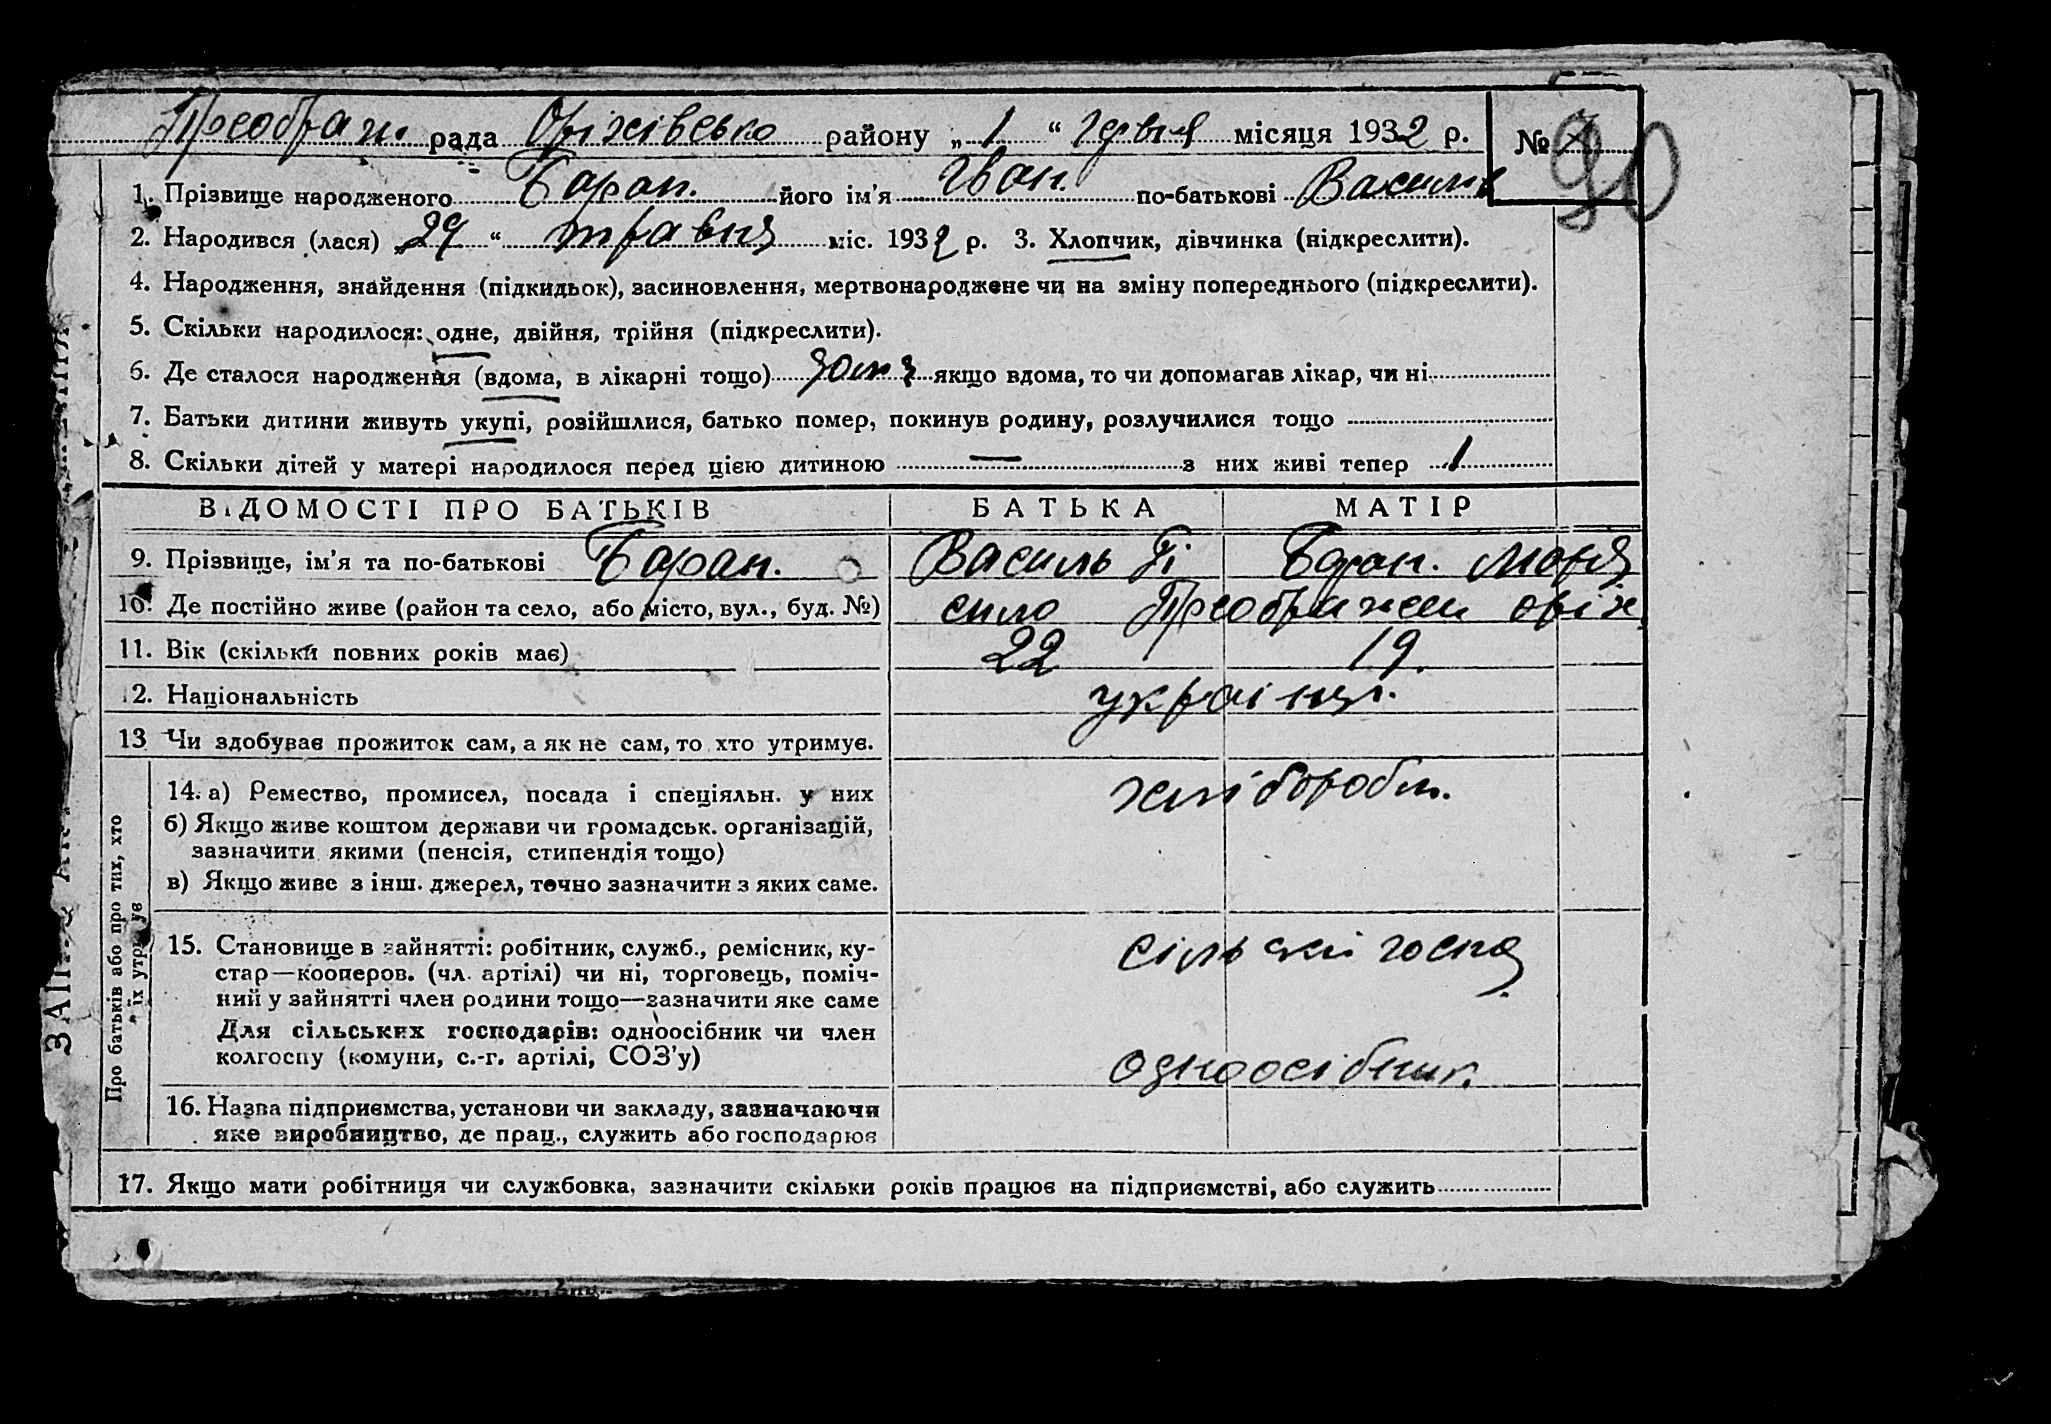 Преображ. рада Оріхівсько району „ 1 “ червня місяця 1932 р. № 90
1. Прізвище народженого Баран. його ім'я Іван. по-батькові Василь
2. Народився (лася) „29“ травня міс. 1932 р. 3. Хлопчик, дівчинка (підкреслити).
4. Народження, знайдення (підкидьок), засиновлення, мертвонароджене чи на зміну попереднього (підкреслити).
5. Скільки народилося: одне, двійня, трійня (підкреслити).
6. Де сталося народження (вдома, в лікарні тощо) якщо вдома, то чи допомагав лікар, чи ні
7. Батьки дитини живуть укупі, розвійшлися, батько помер, покинув родину, розлучилися тощо
8. Скільки дітей у матері народилося перед цією дитиною — з них живі тепер 1
ВІДОМОСТІ ПРО БАТЬКІВ БАТЬКА МАТІР
9. Прізвище, ім'я та по-батькові Баран. Василь Баран. Марія
10. Де постійно живе (район та село, або місто, вул., буд. №) село Преображен оріх.
11. Вік (скільки повних років має) 22 19.
12. Національність україн.
13 Чи здобував прожиток сам, а як не сам, то хто утримує.
Про батьків або про тих, хто
їх утримує
14. а) Ремество, промисел, посада і спеціяльн. у них хлібороби.
б) Якщо живе коштом держави чи громадськ. організацій,
зазначити якими (пенсія, стипендія тощо)
в) Якщо живе з інш. джерел, точно зазначити з яких саме.
15. Становище в зайнятті: робітник, служб., ремісник, ку-
стар—кооперов. (чл. артілі) чи ні, торговець, поміч-
ний у зайнятті член родини тощо—зазначити яке саме
сільські госпо
Для сільських господарів: одноосібник чи член
колгоспу (комуни, с.-г. артілі, СОЗ'у)
одноосібник.
16. Назва підприємства, установи чи закладу, зазначаючи
яке виробництво, де прац., служить або господарює
17. Якщо мати робітниця чи службовка, зазначити скільки років працює на підприємстві, або служить